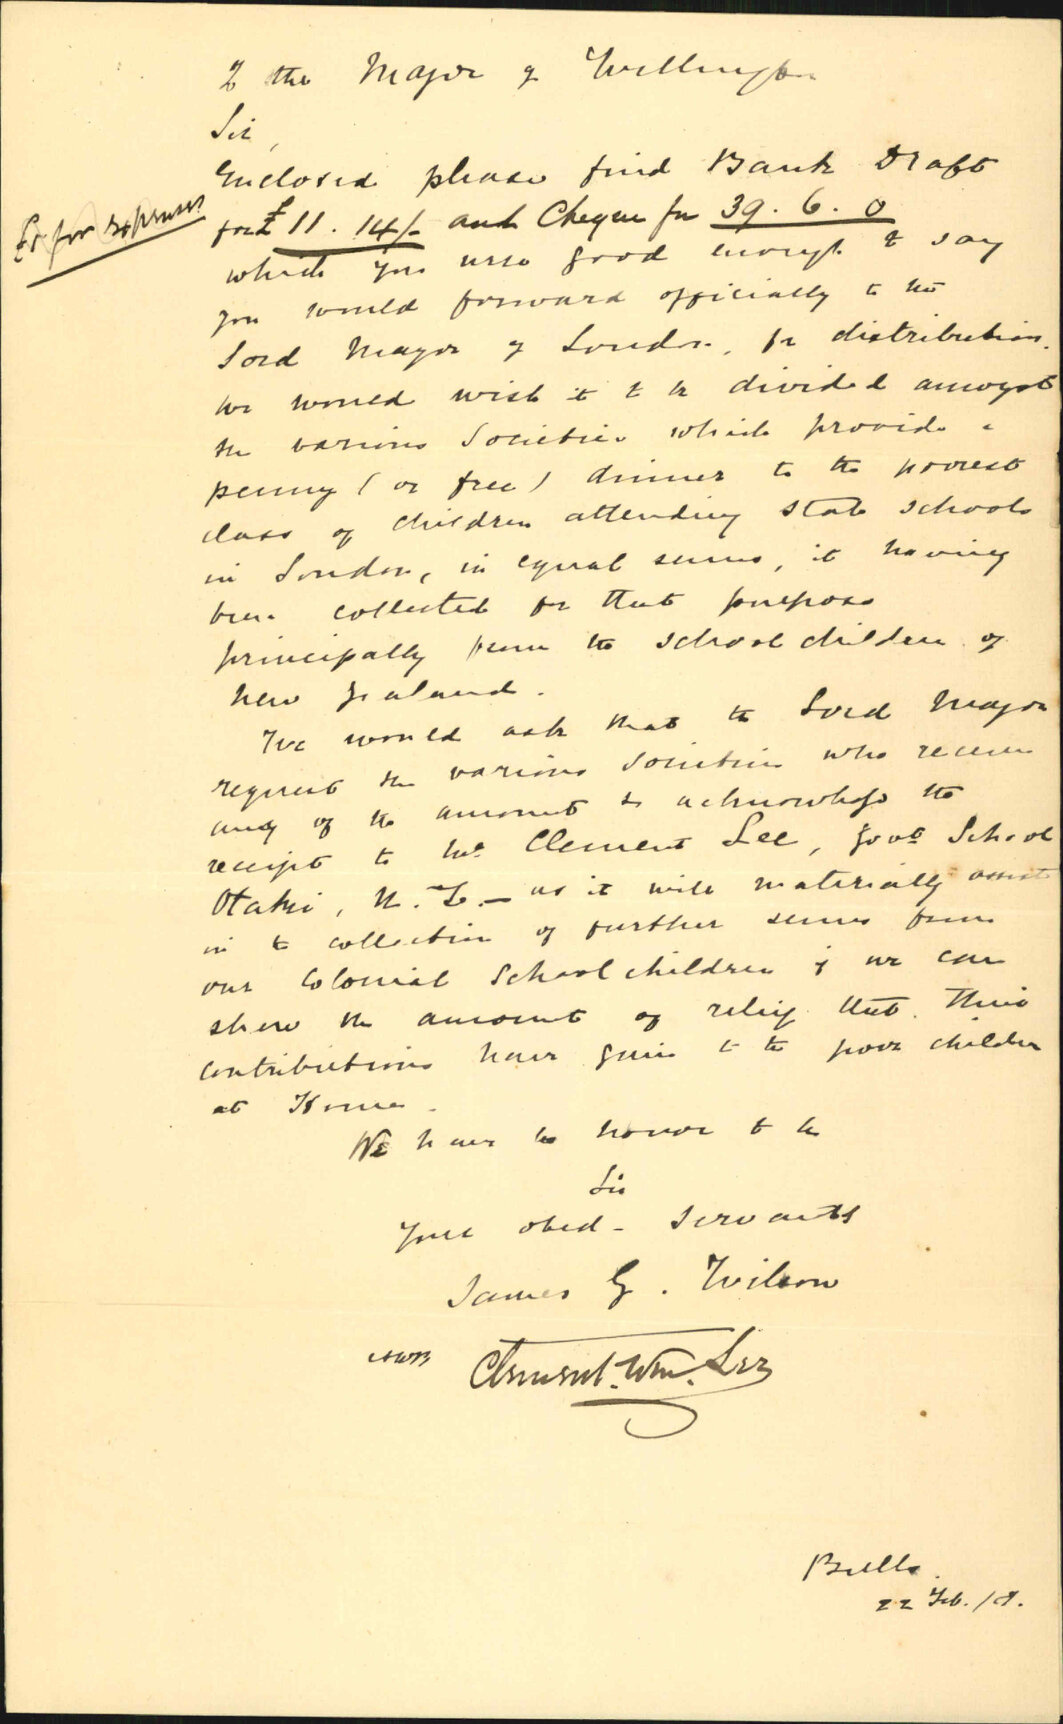 To the Mayor of Wellington
Sir,
Enclosed please find Bank Draft
for £11. 14/- and Cheque for 39. 6. 0
for expenses
which you were good enough to say
you would forward officially to the
Lord Mayor of London, for distribution.
We would wish it to be divided amongst
the various Societies which provide a
penny (or free) dinner to the poorest
class of children attending State schools
in London, in equal sums, it having
been collected for that purpose
principally from the school children of
New Zealand.
We would ask that the Lord Mayor
request the various Societies who receive
any of the amount to acknowledge the
receipt to Mr. Clement Lee, Govt School
Otaki, N.Z. — as it will materially assist
in the collection of further sums from
our Colonial School children if we can
show the amount of relief that their
contributions have given to the poor children
at Home.
We have the honor to be
Sir
Your obed- Servants
James G. Wilson
Clement. Wm. Lee
Bulls.
22 Feb.